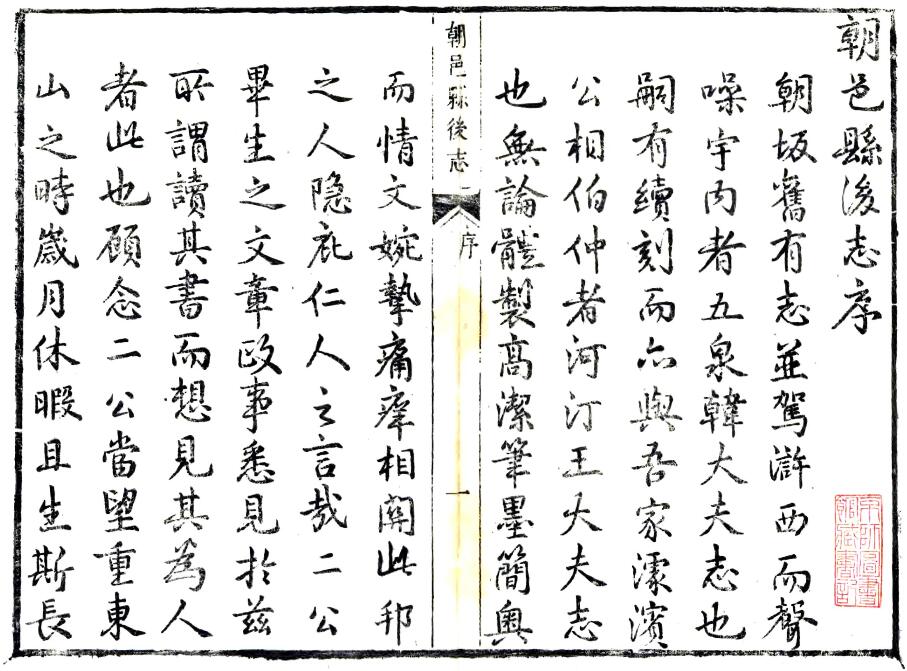 朝邑縣後志序
朝坂舊有志並駕滸西而聲
噪宇内者五泉韓大夫志也
嗣有續刻而亦與吾家濛濱
公相伯仲者河汀王大夫志
也無論體製高潔筆墨簡奥
朝邑縣後志
序
一
而情文婉摯痛痒相關此邦
之人隐庇仁人之言哉二公
畢生之文章政事悉見於兹
所謂讀其書而想見其為人
者此也顧念二公當望重東
山之時歲月休暇且生斯長
京師圖書
館藏書記